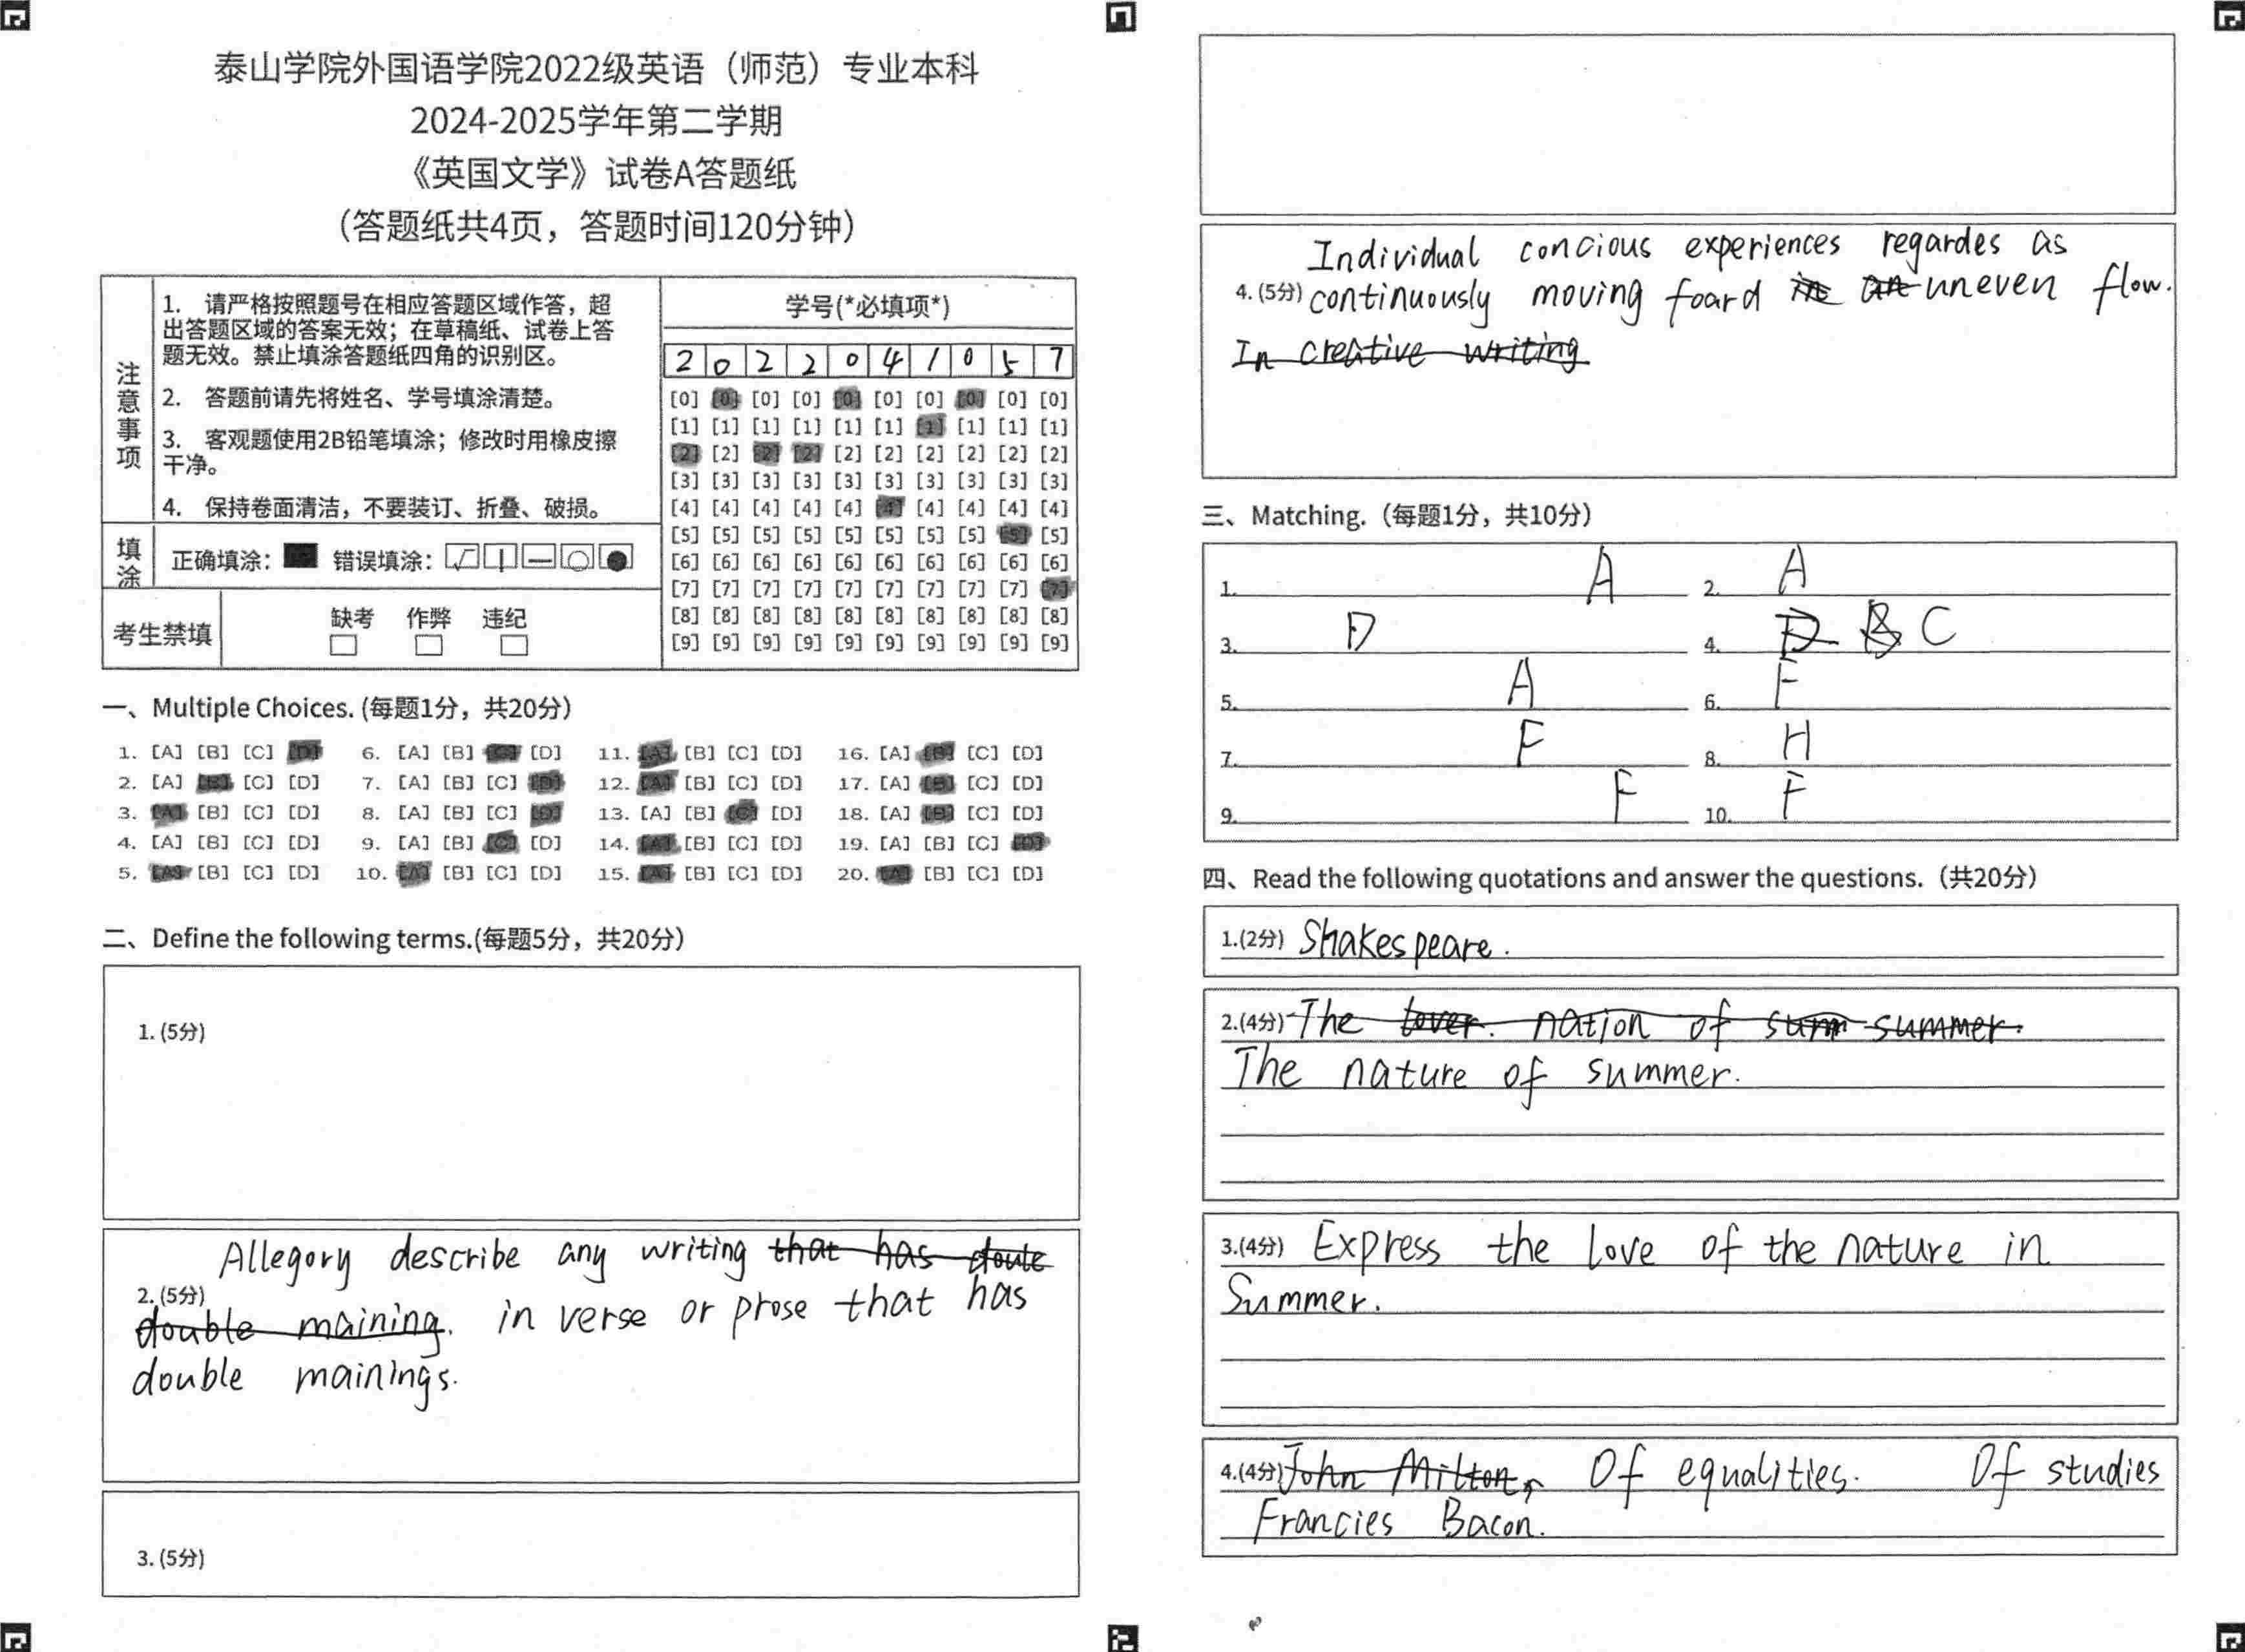 泰山学院外国语学院2022级英语（师范）专业本科
2024-2025学年第二学期
《英国文学》试卷A答题纸
（答题纸共4页，答题时间120分钟）
注意事项
1. 请严格按照题号在相应答题区域作答，超
出答题区域的答案无效；在草稿纸、试卷上答
题无效。禁止填涂答题纸四角的识别区。
2. 答题前请先将姓名、学号填涂清楚。
3. 客观题使用2B铅笔填涂；修改时用橡皮擦
干净。
4. 保持卷面清洁，不要装订、折叠、破损。
填涂
正确填涂： 错误填涂：
考生禁填
缺考 作弊 违纪
学号(*必填项*)
2 0 2 2 0 4 1 0 5 7
[0] [0] [0] [0] [0] [0] [0] [0] [0] [0]
[1] [1] [1] [1] [1] [1] [1] [1] [1] [1]
[2] [2] [2] [2] [2] [2] [2] [2] [2] [2]
[3] [3] [3] [3] [3] [3] [3] [3] [3] [3]
[4] [4] [4] [4] [4] [4] [4] [4] [4] [4]
[5] [5] [5] [5] [5] [5] [5] [5] [5] [5]
[6] [6] [6] [6] [6] [6] [6] [6] [6] [6]
[7] [7] [7] [7] [7] [7] [7] [7] [7] [7]
[8] [8] [8] [8] [8] [8] [8] [8] [8] [8]
[9] [9] [9] [9] [9] [9] [9] [9] [9] [9]
一、Multiple Choices. (每题1分，共20分)
1. [A] [B] [C] [D] 6. [A] [B] [C] [D] 11. [A] [B] [C] [D] 16. [A] [B] [C] [D]
2. [A] [B] [C] [D] 7. [A] [B] [C] [D] 12. [A] [B] [C] [D] 17. [A] [B] [C] [D]
3. [A] [B] [C] [D] 8. [A] [B] [C] [D] 13. [A] [B] [C] [D] 18. [A] [B] [C] [D]
4. [A] [B] [C] [D] 9. [A] [B] [C] [D] 14. [A] [B] [C] [D] 19. [A] [B] [C] [D]
5. [A] [B] [C] [D] 10. [A] [B] [C] [D] 15. [A] [B] [C] [D] 20. [A] [B] [C] [D]
二、Define the following terms.(每题5分，共20分)
1. (5分)
Allegory describe any writing that has doule
2. (5分)
double maining. in verse or prose that has
double mainings.
3. (5分)
Individual concious experiences regardes as
4. (5分) continuously moving foard in an uneven flow.
In creative writing
三、Matching.（每题1分，共10分）
1. A 2. A
3. D 4. D B C
5. A 6. F
7. F 8. H
9. F 10. F
四、Read the following quotations and answer the questions.（共20分）
1.(2分) Shakespeare.
2.(4分) The lover. nation of sum summer.
The nature of summer.
3.(4分) Express the love of the nature in
Summer.
4.(4分) John Milton, Of equalities. Of studies
Francies Bacon.